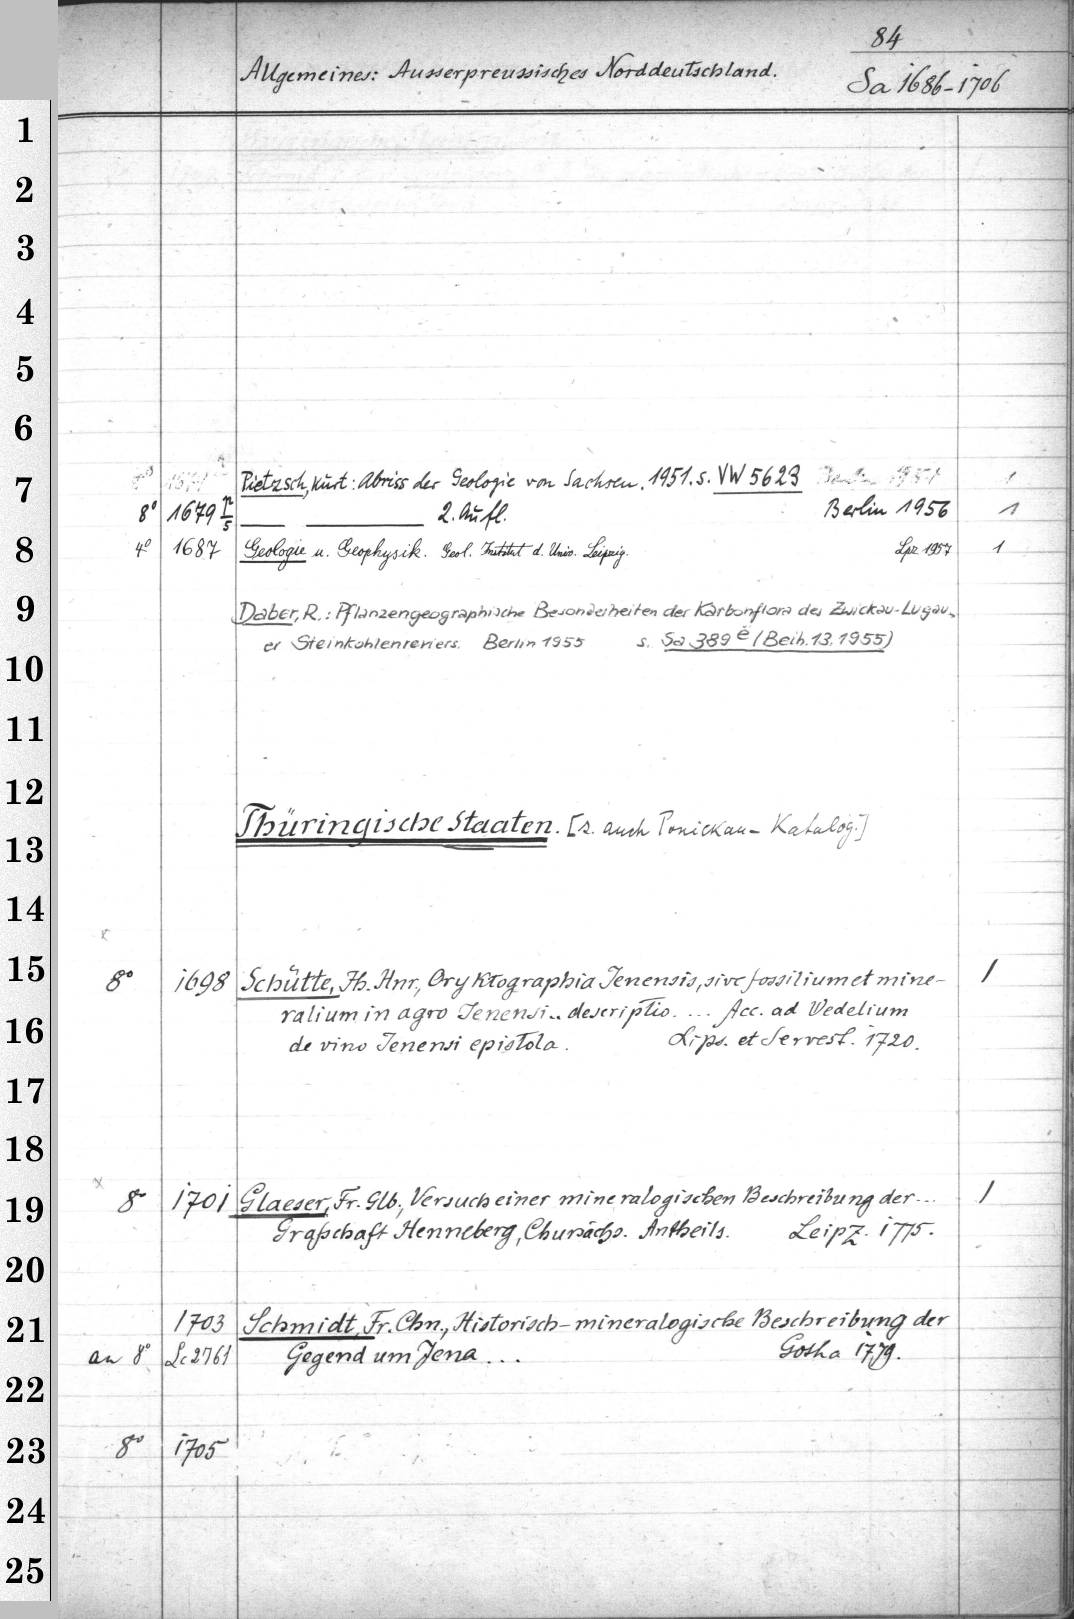 84
Allgemeines: Ausserpreussisches Norddeutschland.
Sa 1686-1706
1
2
3
4
5
6
7
8
9
10
11
12
13
14
15
16
17
18
19
20
21
22
23
24
25
Pietzsch, Kurt: Abriss der Geologie von Sachsen. 1951. s. VW 5623 1
8° 1679 n/5 2. Aufl. Berlin 1956 1
4° 1687 Geologie u. Geophysik. Geol. Institut d. Univ. Leipzig. Lpz 1957 1
Daber, R.: Pflanzengeographische Besonderheiten der Karbonflora des Zwickau-Lugau-
er Steinkohlenreviers. Berlin 1955 s. Sa 389 e (Beih. 13. 1955)
Thüringische Staaten. [s. auch Ponickau-Katalog.]
8° 1698 Schütte, Jh. Hnr., Oryktographia Jenensis, sive fossilium et mine- 1
ralium in agro Jenensi .. descriptio. ... Acc. ad Wedelium
de vino Jenensi epistola. Lips. et Servest. 1720.
8° 1701 Glaeser, Fr. Glb., Versuch einer mineralogischen Beschreibung der ... 1
Grafschaft Henneberg, Chursächs. Antheils. Leipz. 1775.
1703 Schmidt, Fr. Chn., Historisch-mineralogische Beschreibung der
an 8° Lc 2761 Gegend um Jena ... Gotha 1779.
8° 1705